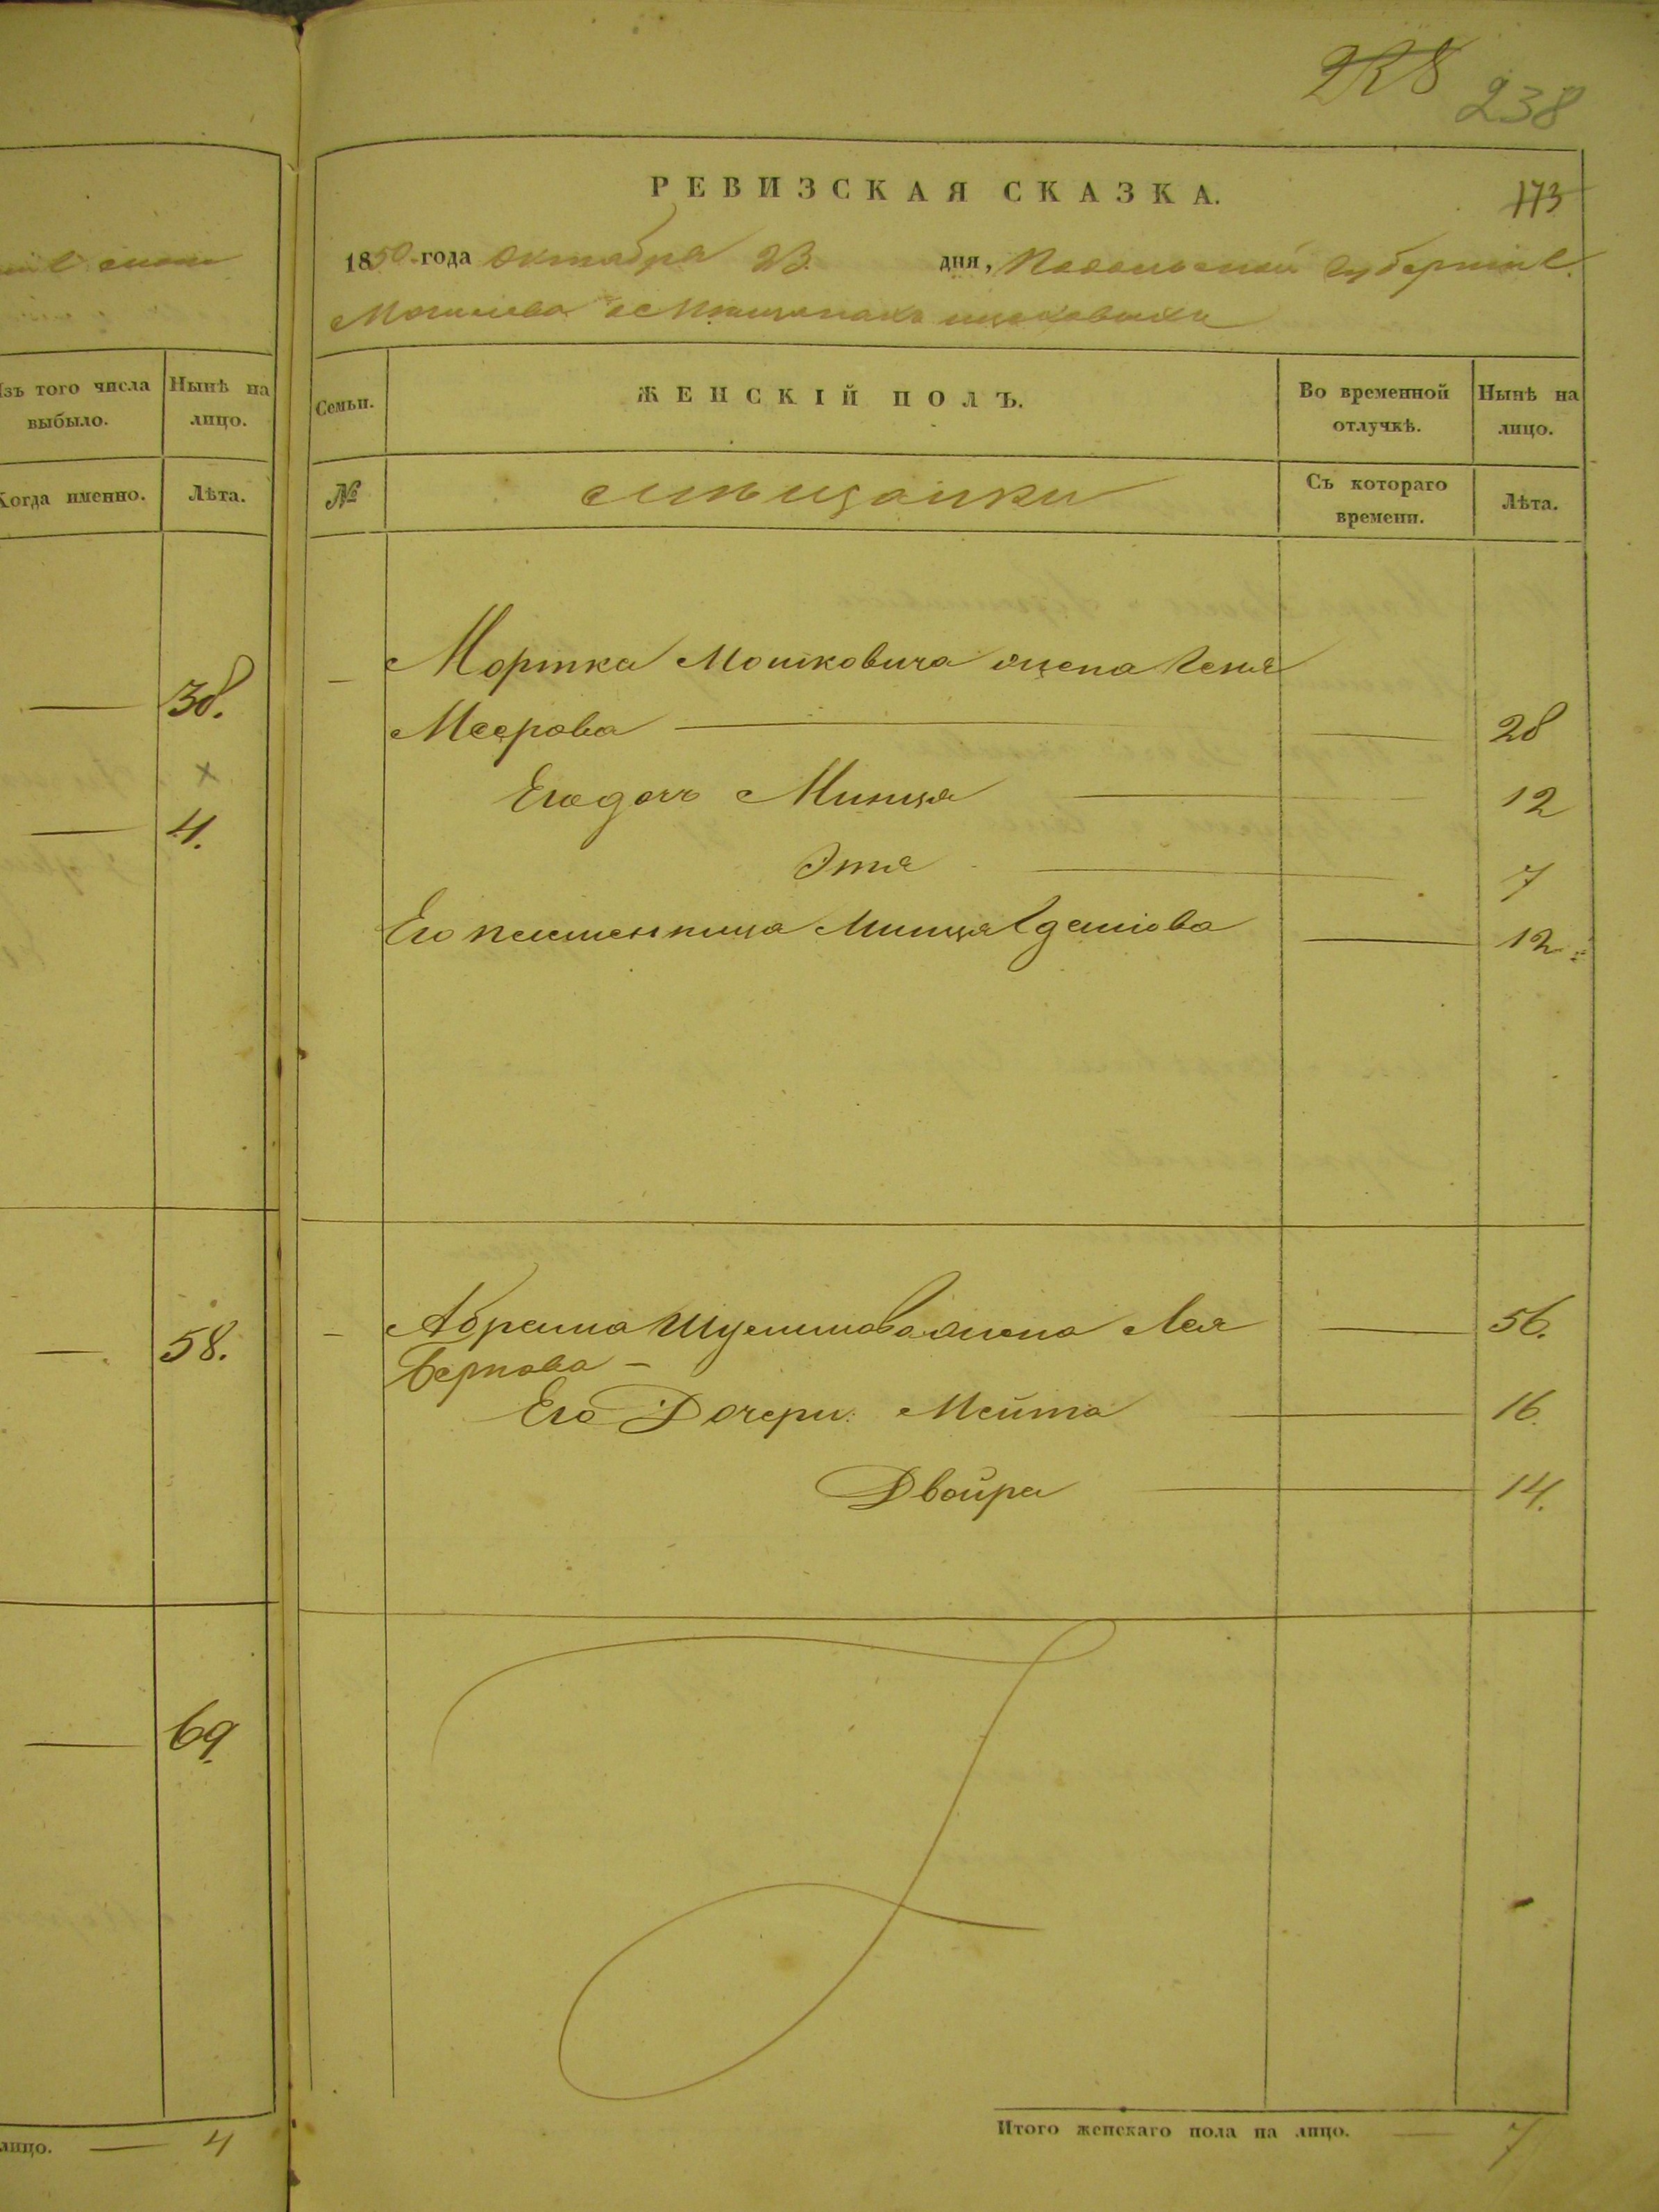 238
238
РЕВИЗСКАЯ СКАЗКА.
173
1850 года Октября 23. дня, Подольской Губернии Г.
Могилева о Мещанахъ цеховыхъ
Изъ того числа выбыло.
Нынѣ на лицо.
Когда именно.
Лѣта.
Семьи.
ЖЕНСКІЙ ПОЛЪ.
Во временной отлучкѣ.
Нынѣ на лицо.
№
мѣщанки
Съ котораго времени.
Лѣта.
— Мортка Мошковича жена Геня
Меерова — — 28
Его дочь Минця — 12
Этя — 7
Его племенница Минця — 12
— Абрама Шулимова жена Лея — 56.
Беркова —
Его Дочери: Мейта — 16.
Двойра — 14.
— 30.
×
— 4.
— 58.
— 69.
лицо. — 4
Итого женскаго пола на лицо. — 7